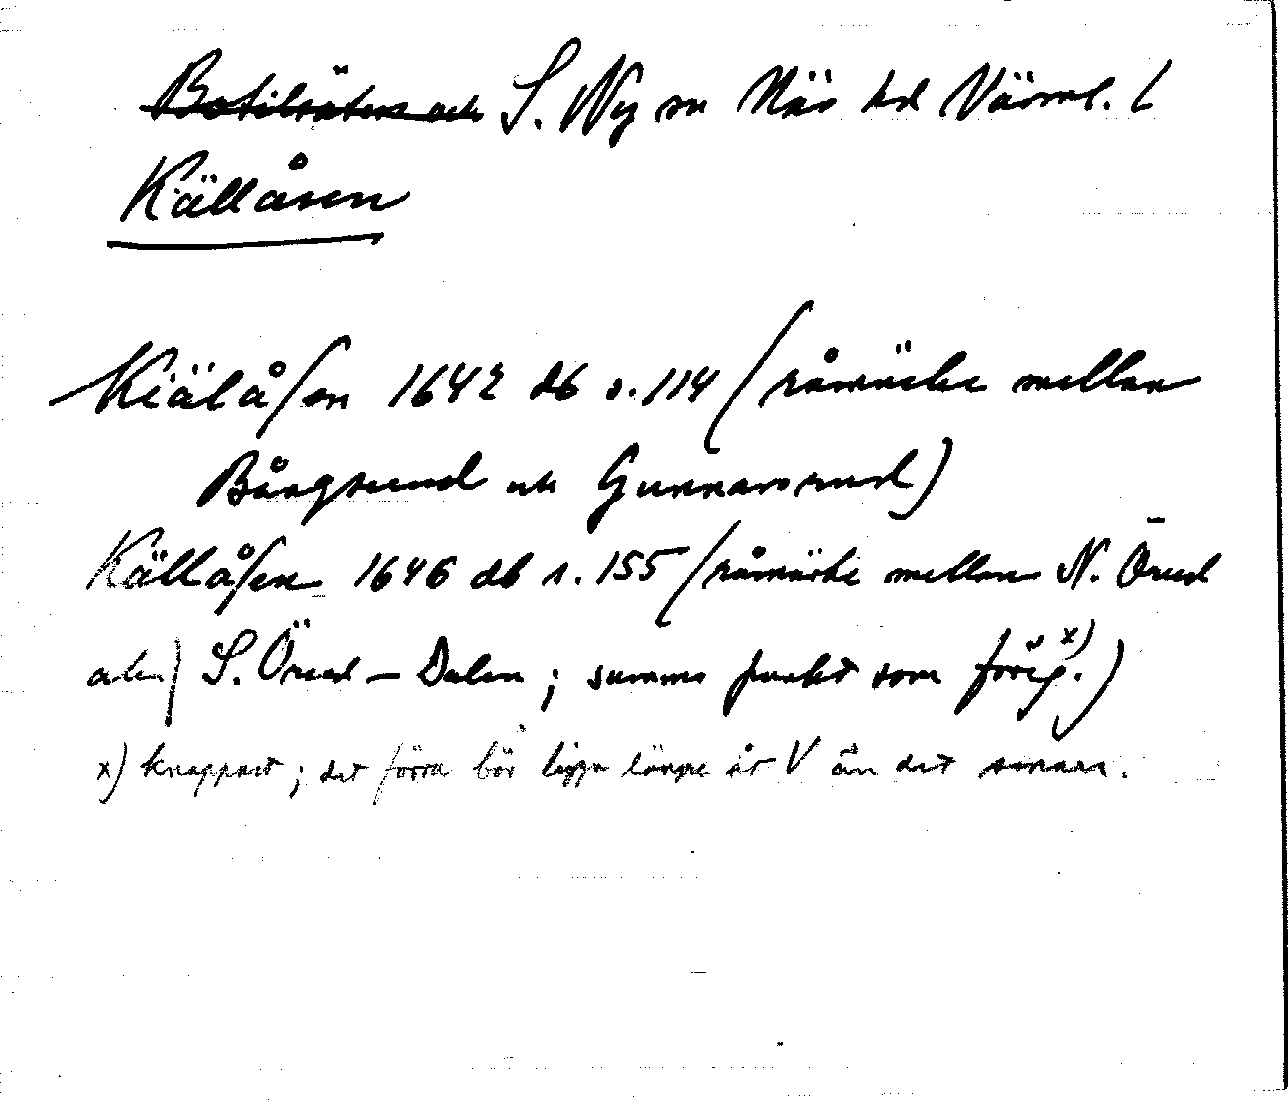 Botilsäter och S. Ny sn Näs hd Värml. l
Källåsen
Kiälåsen 1642 db s. 114 (råmärke mellan
Bångsrud och Gunnarsrud)
Källåsen 1646 db s. 155 (råmärke mellan N. Örud
och) S. Örud – Dalen; samma punkt som förig. x))
x) knappast; det förra bör ligga längre åt V än det senare.